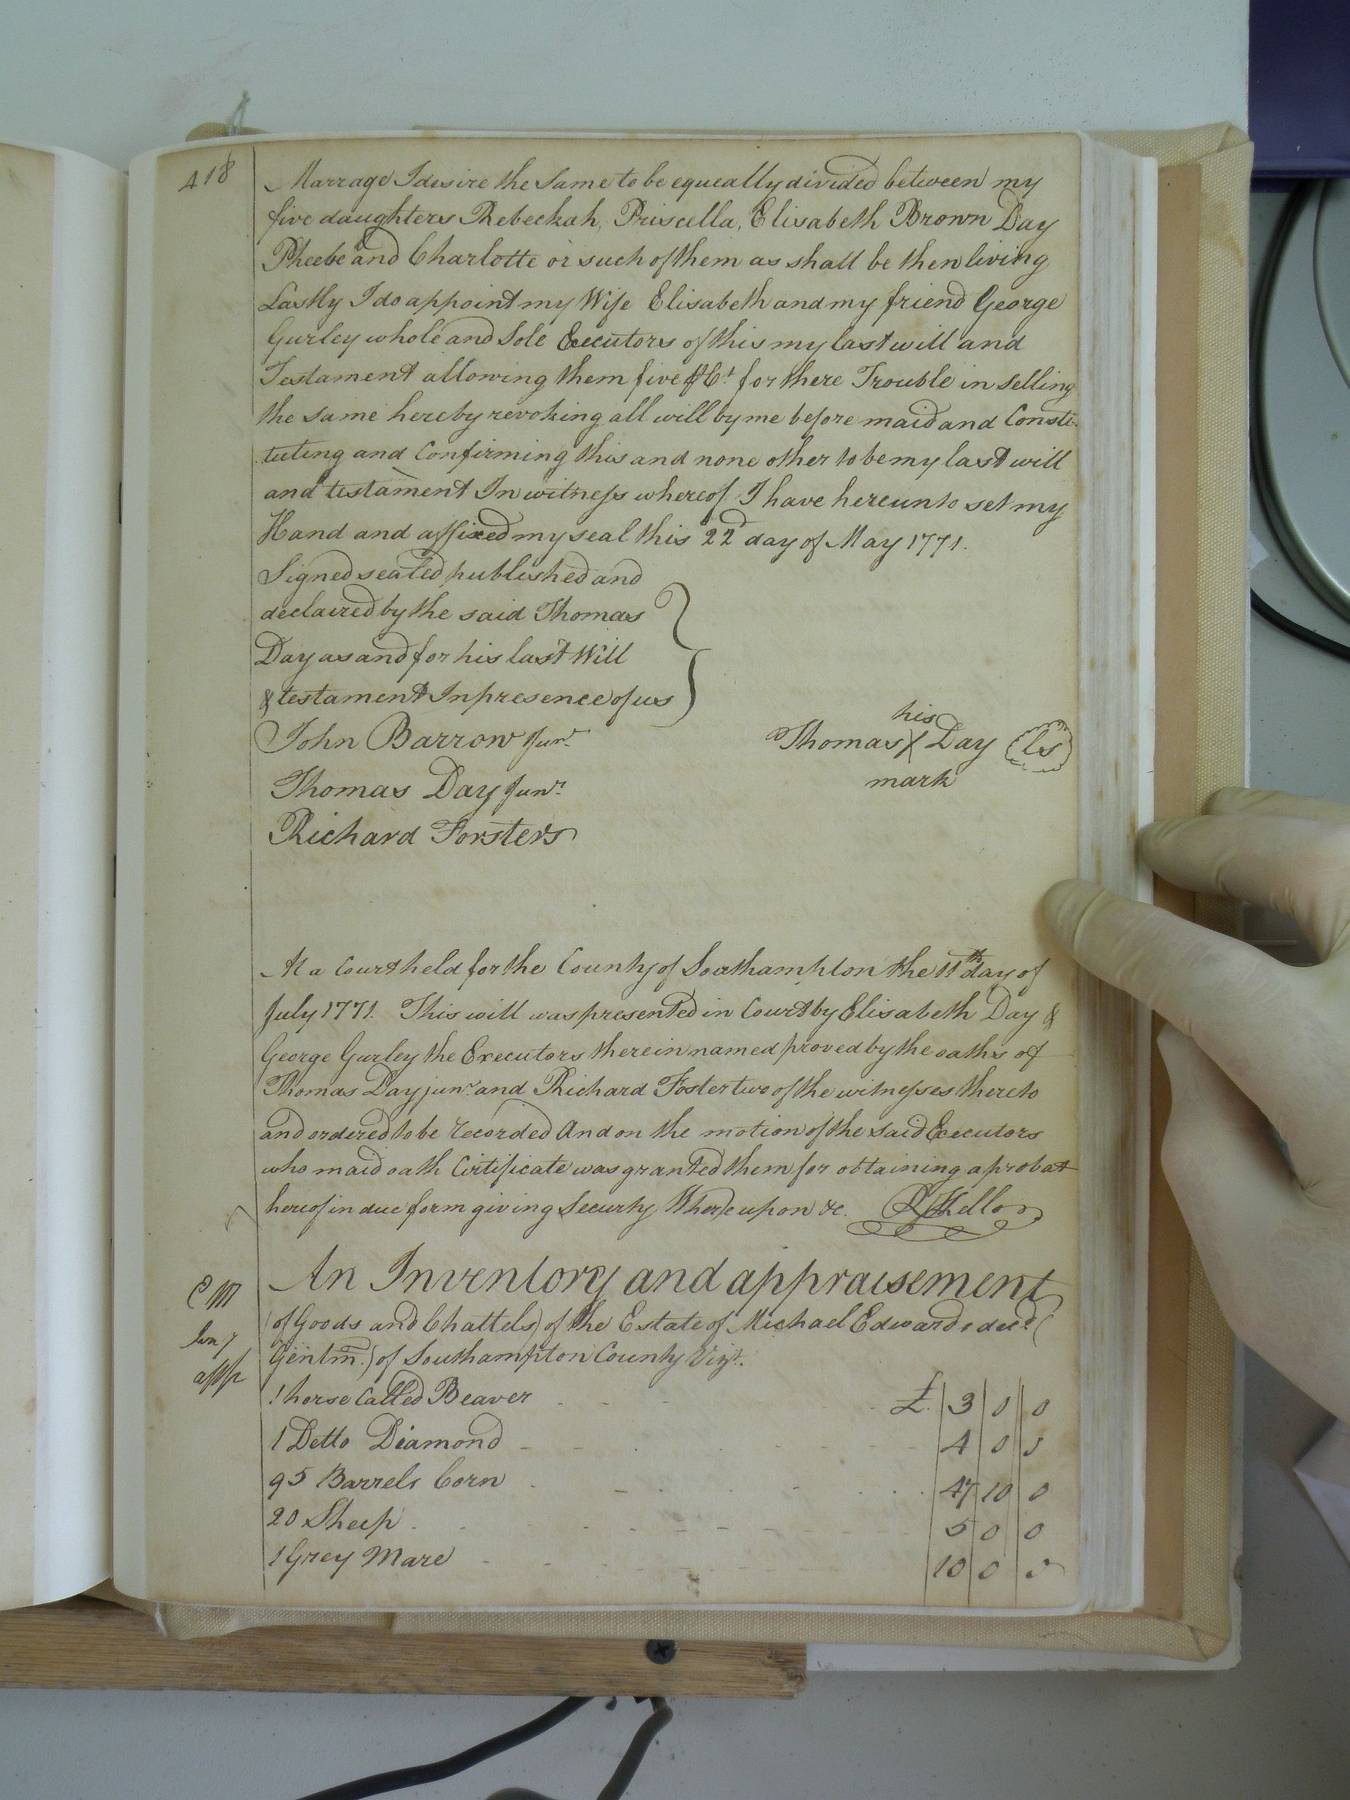 418
Marrage I desire the Same to be equeally divided between my
five daughters Rebeckah, Priscella, Elisabeth Brown Day
Pheebe and Charlotte or such of them as shall be then living
Lastly I do appoint my Wife Elisabeth and my friend George
Gurley whole and Sole Executors of this my last will and
Testament allowing them five ⅌ Ct for there Trouble in Selling
the same hereby revoking all will by me before maid and Consti-
tuting and Confirming this and none other to be my last will
and testament In witness whereof I have hereunto set my
Hand and affixed my seal this 22d day of May 1771.
Signed sealed published and
declaired by the said Thomas
Day as and for his last Will
& testament In presence of us
John Barrow Junr
his
Thomas X Day Ls
mark
Thomas Day Junr
Richard Forsters
At a Court held for the County of Southampton the 11th day of
July 1771. This will was presented in Court by Elisabeth Day &
George Gurley the Executors therein named proved by the oaths of
Thomas Day junr and Richard Foster two of the witnesses thereto
and ordered to be recorded And on the motion of the said Executors
who maid oath Certificate was granted them for obtaining a probat
hereof in due form giving Security Whereupon &c. R Kello
An Inventory and appraisement
(of Goods and Chattels) of the Estate of Michael Edwards decd (
Gentm.) of Southampton County Virga.
1 horse Called Beaver £ 3 0 0
1 Detto Diamond 4 0 0
95 Barrels Corn 47 10 0
20 Sheep 5 0 0
1 Grey Mare 10 0 0